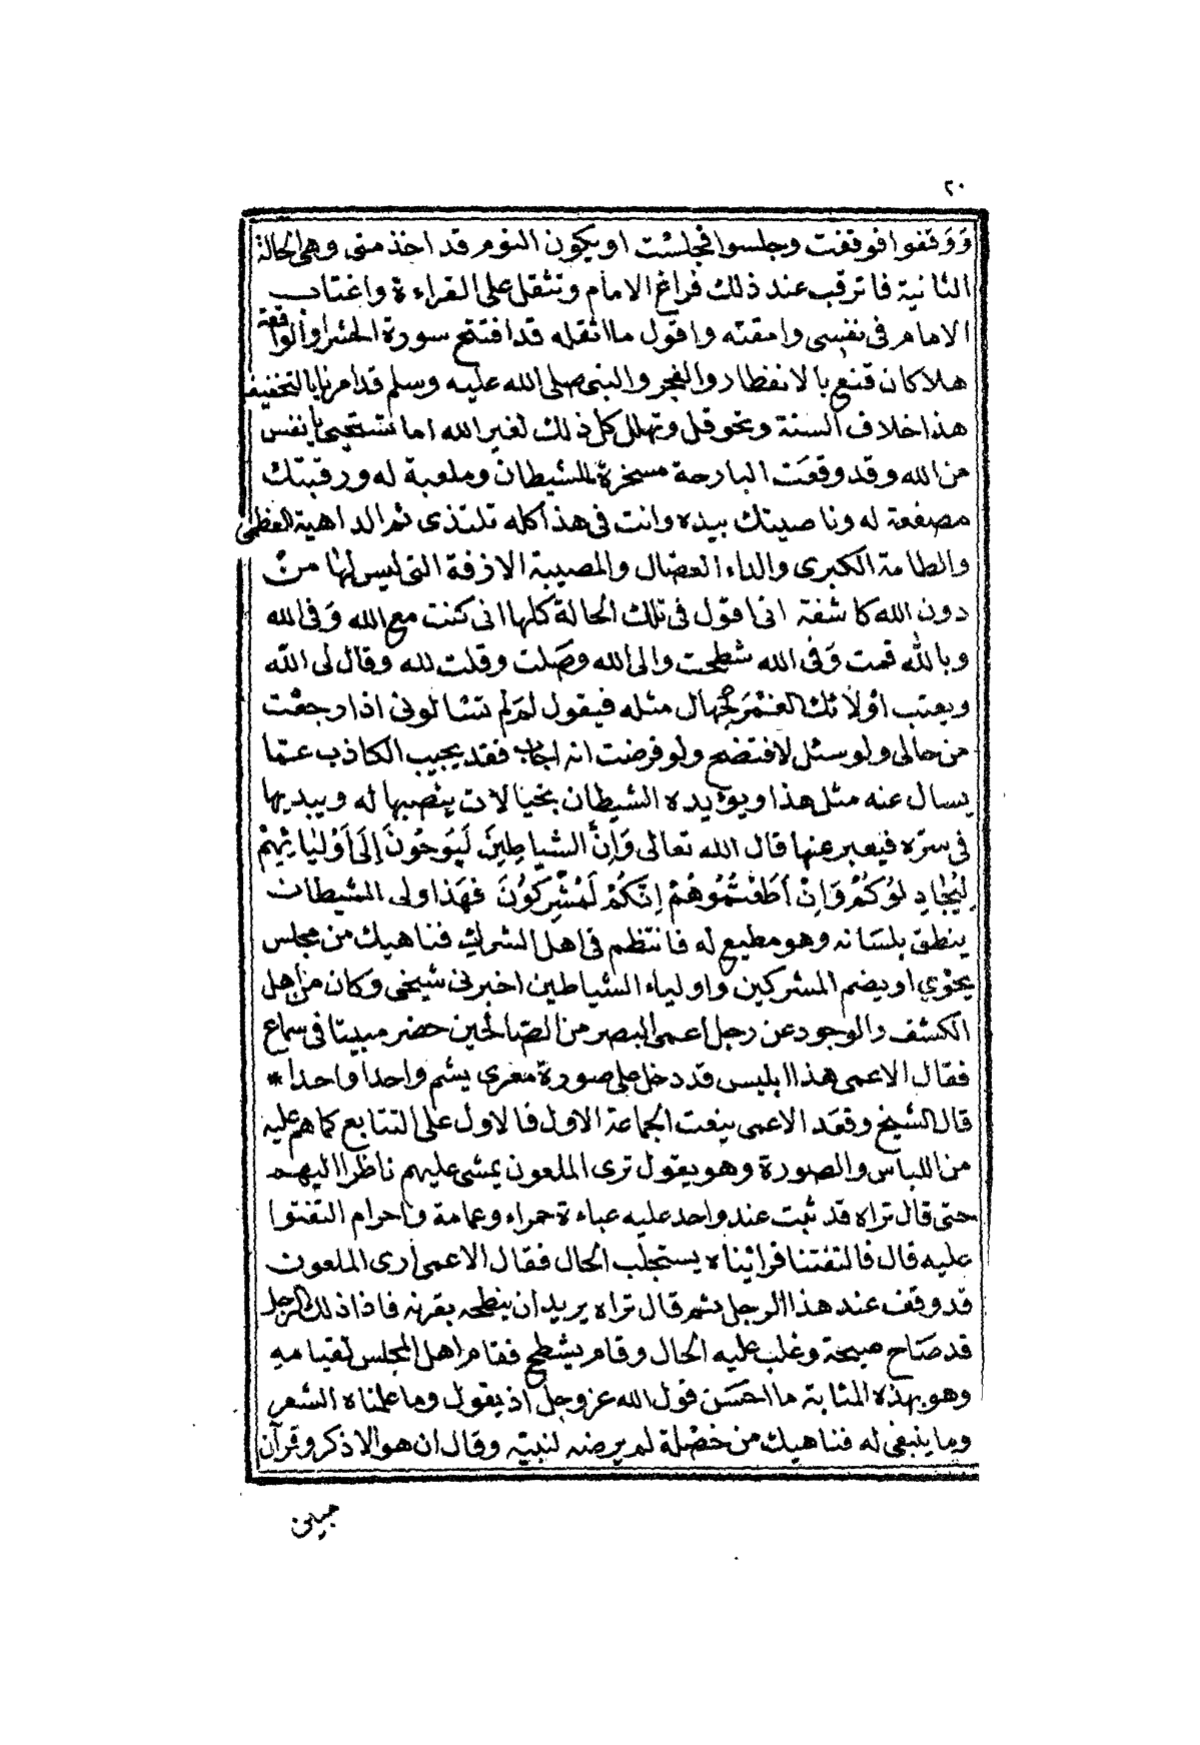 ٢٠
وَوَقفوا فوقفت وجلسوا فجلست او يكون النوم قد اخذ منى وهى الحالة
الثانية فاترقب عند ذلك فراغ الامام وتثقل على القراءة واغتاب
الامام فى نفسى وامقته واقول ما اثقله قد افتتح سورة الحشر او الواقعة
هلا كان قنع بالانفطار والفجر والنبى صلى الله عليه وسلم قد امرنا بالتخفيف
هذا خلاف السنة وتحوقل وتهلل كل ذلك لغير الله اما تستحيى يا نفس
من الله وقد وقعت البارحة مسخرة للشيطان وملعبة له ورقبتك
مصفعة له وناصيتك بيده وانت فى هذا كله تلتذى ثم الداهية العظمى
والطامة الكبرى والداء العضال والمصيبة الازفة التى ليس لها من
دون الله كاشفة انى اقول فى تلك الحالة كلها انى كنت مع الله وَفى الله
وبالله قمت وَفى الله شطحت والى الله وصَلت وقلت لله وقال لى الله
ويعتب اولائك الغمر لجهال مثله فيقول لمَ لم تسَالونى اذا رجعت
من حالى ولو سئل لافتضح ولو فرضت انه اجاب فقد يجيب الكاذب عمّا
يسال عنه مثل هذا ويؤيده الشيطان بخيالات ينصبها له ويبديها
فى سرّه فيعبر عنها قال الله تعالى وَاِنَّ الشّياطِينَ لَيوحُونَ اِلَى اَوْليائِهِمْ
لِيُجَادِلُوكُمْ وَاِنْ اَطَعْتُمُوهُمْ اِنَّكُمْ لَمُشْرِكُونَ فهَذا ولى الشيطان
ينطق بلسَانه وهو مطيع له فانتظم فى اهل الشرك فناهيك من مجلس
يحوي او يضم المشركين واولياء الشياطين اخبرنى شيخى وكان من اهل
الكشف والوجود عن رجل اعمى البصر من الصّالحين حضر مبيتا فى سماع
فقال الاعمى هذا ابليس قد دخل على صورة معزى يشم واحدا واحدا *
قال الشيخ وقعَد الاعمى ينعت الجماعة الاول فالاول على التتابع كما هم عليه
من اللباس والصورة وهو يقول ترى الملعون يمشى عليهم ناظرا اليهم
حتى قال تراه قد ثبت عند واحد عليه عباءة حمراء وعمامة واحرام التفتوا
عليه قال فالتفتنا فرايناه يستجلب الحال فقال الاعمى ارى الملعون
قد وقف عند هذا الرجل ثم قال تراه يريد ان ينطحه بقرنه فاذا ذلك الرجل
قد صَاح صيحة وغلب عليه الحال وقام يشطح فقام اهل المجلس لقيامه
وهو بهذه المثابة ما احسَن قول الله عز وجل اذ يقول وما علمناه الشعر
وما ينبغى له فناهيك من خصْلة لم يرضه لنبيّه وقال ان هو الا ذكر وقرآن
مبين